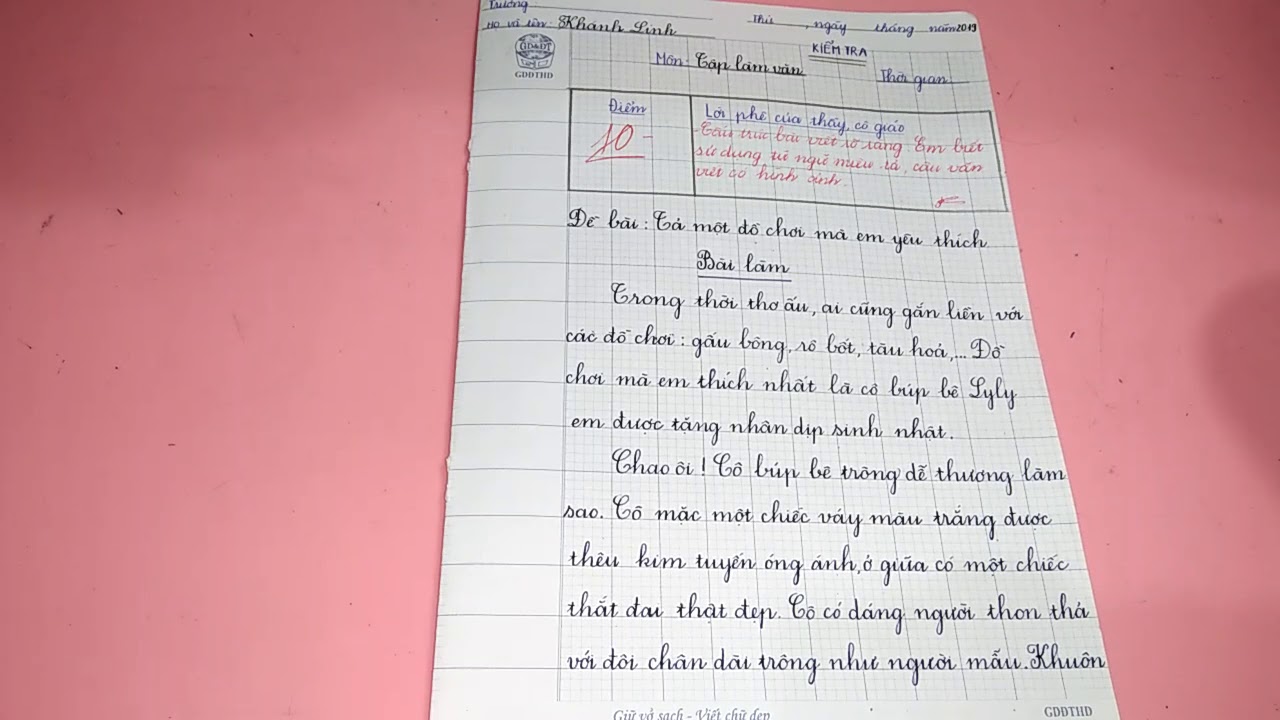 Trường:
Họ và tên: Khánh Linh
Thứ , ngày tháng năm 2019
GD&ĐT
GDĐTHD
KIỂM TRA
Môn: Tập làm văn
Thời gian
Điểm
10-
Lời phê của thầy, cô giáo
- Cấu trúc bài viết rõ ràng Em biết
sử dụng từ ngữ miêu tả, câu văn
viết có hình ảnh.
Đề bài: Tả một đồ chơi mà em yêu thích
Bài làm
Trong thời thơ ấu, ai cũng gắn liền với
các đồ chơi: gấu bông, rô bốt, tàu hoả,... Đồ
chơi mà em thích nhất là cô búp bê Lyly
em được tặng nhân dịp sinh nhật.
Chao ôi! Cô búp bê trông dễ thương làm
sao. Cô mặc một chiếc váy màu trắng được
thêu kim tuyến óng ánh, ở giữa có một chiếc
thắt đai thật đẹp. Cô có dáng người thon thả
với đôi chân dài trông như người mẫu. Khuôn
Giữ vở sạch - Viết chữ đẹp
GDĐTHD